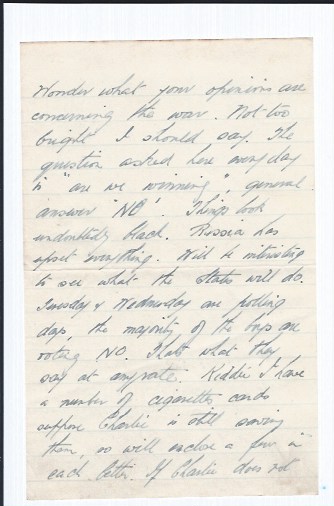 Wonder what your opinions are
concerning the war. Not too
bright I should say. The
question asked here everyday
is "are we winning", general
answer "NO". Things look
undoubtedly black. Russia has
upset everything. Will be interesting
to see what the States will do.
Tuesday & Wednesday are polling
days, the majority of the boys are
voting NO. Thats what they
say at anyrate. Kiddie I have
a number of cigarettes cards
suppose Charlie is still saving
them, so will enclose a few in
each letter. If Charlie does not